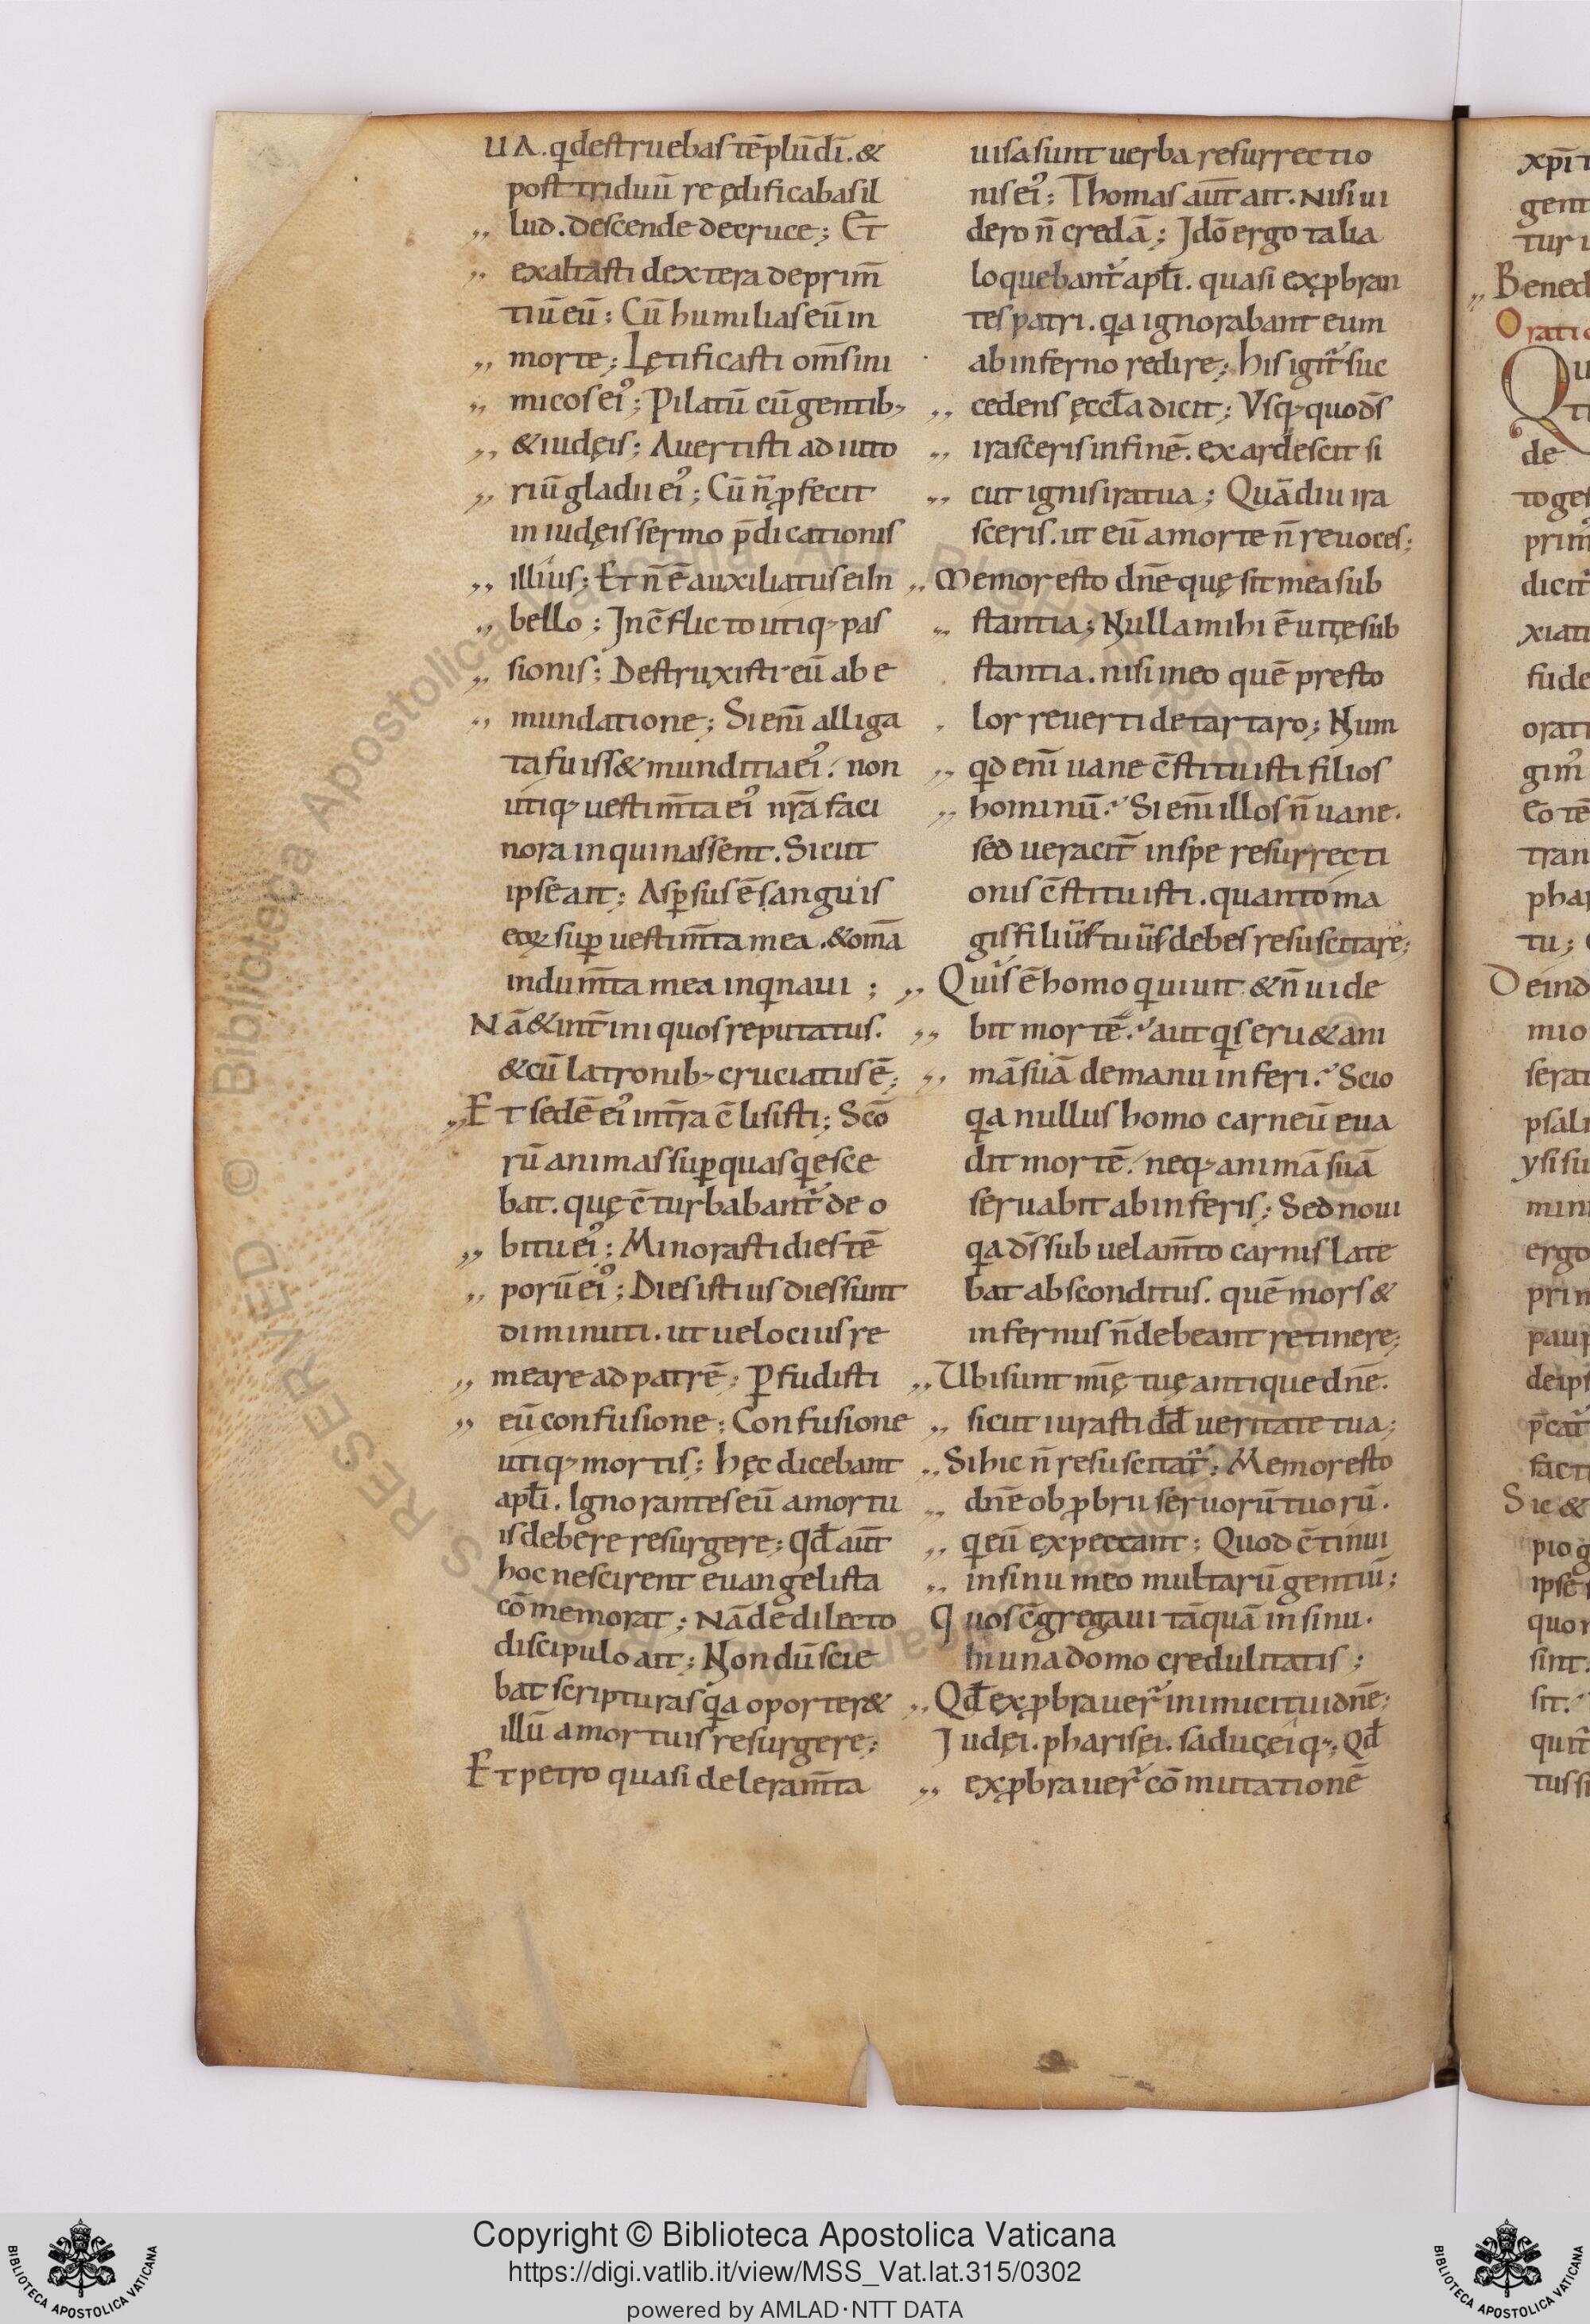 UA. q destruebas tēplū dī. &
post triduū reędificabas il
lud. descende de cruce; Et
exaltasti dextera deprim̄
tiū eū; Cū humilias eū in
morte; Lętificasti om̄s ini
micos ei᾽; Pilatū cū gentib;
& iudęis; Auertisti adiuto
riū gladii ei᾽; Cū n̄ ꝓfecit
in iudęis sermo p̄dicationis
illius; Et n̄ ē auxiliatus ei In
bello; In c̄flicto utiq; pas
sionis; Destruxisti eū ab e
mundatione; Si eni̅ alliga
ta fuiss& munditia ei᾽. non
utiq; uestim̄ta ei᾽ nr̄a faci
nora inquinassent. Sicut
ipse ait; Asꝑsus ē sanguis
eoꝝ suꝑ uestim̄ta mea. & om̄a
indum̄ta mea inqnaui;
Nā & int̄ iniquos reputatus.
& cū latronib; cruciatus ē;
Et sedē ei᾽ in t̄ra c̄lisisti; Sc̄o
rū animas suꝑ quas qesce
bat. quę c̄turbabant᾽ de o
bitu ei᾽; Minorasti dies tē
porū ei᾽; Dies istius dies sunt
diminuti. ut uelocius re
meare ad patrē; Ꝑfudisti
eū confusione; Confusione
utiq; mortis; hęc dicebant
apl̄i. Ignorantes eū a mortu
is debere resurgere; Qđ aūt
hoc nescirent euangelista
cōmemorat; Nā de dilecto
discipulo ait; Nondū scie
bat scripturas qa oporter&
illū a mortuis resurgere;
Et petro quasi deleram̄ta
uisa sunt uerba resurrectio
nis ei᾽; Thomas aūt ait. Nisi ui
dero n̄ credā; Idō ergo talia
loquebant᾽ apl̄i. quasi exꝓbran
tes patri. qa ignorabant eum
ab inferno redire; his igit᾽ suc
cedens ęccl̄a dicit; Vsq; quo dr̄s
irasceris in finē. exardescit si
cut ignis ira tua; Quādiu ira
sceris. ut eū a morte n̄ reuoces;
Memor esto dn̄e quę sit mea sub
stantia; Nulla mihi ē uitę sub
stantia. nisi in eo quē presto
lor reuerti de tartaro; Num
qd eni̅ uane c̄stituisti filios
hominū? Si eni̅ illos n̄ uane.
sed ueracit̄ in spe resurrecti
onis c̄stituisti. quanto ma
gis filiū tuū debes resuscitare;
Quis ē homo qui uiuit. & n̄ uide
bit mortē? aut qs eru& ani
mā suā de manu inferi? Scio
qa nullus homo carneū eua
dit mortē. neq; animā suā
seruabit ab inferis; Sed noui
qa ds̄ sub uelam̄to carnis late
bat absconditus. quē mors &
infernus n̄ debeant retinere;
Ubi sunt mīę tuę antique dn̄e.
sicut iurasti dd̄ ueritate tua;
Si hic n̄ resuscitat᾽; Memor esto
dn̄e obꝓbrii seruorū tuorū.
q eū expectant; Quod c̄tinui
in sinu meo multarū gentiū;
Quos c̄gregaui tāquā in sinu.
In una domo credulitatis;
Qđ exꝓbrauer᾽ inimici tui dn̄e;
Iudęi. pharisęi. saducęiq;; Qđ
exꝓbrauer᾽ cōmutationē
xp̄i
gent
tur
Bened
Oratio
Qu
ti
de
to ges
prim᾽
dicit᾽
xiati
fude
orati
gim᾽
Eo tē
tran
phar
tu;
Deind
mio
serat
psal
ysi su
mini
ergo
prim
paup
de ips
p̄cat᾽
facti
Sic &
pio
ipse
quo
sint.
sit.
quit᾽
tus si
Copyright © Biblioteca Apostolica Vaticana
https://digi.vatlib.it/view/MSS_Vat.lat.315/0302
powered by AMLAD·NTT DATA
BIBLIOTECA APOSTOLICA VATICANA
BIBLIOTECA APOSTOLICA VATICANA